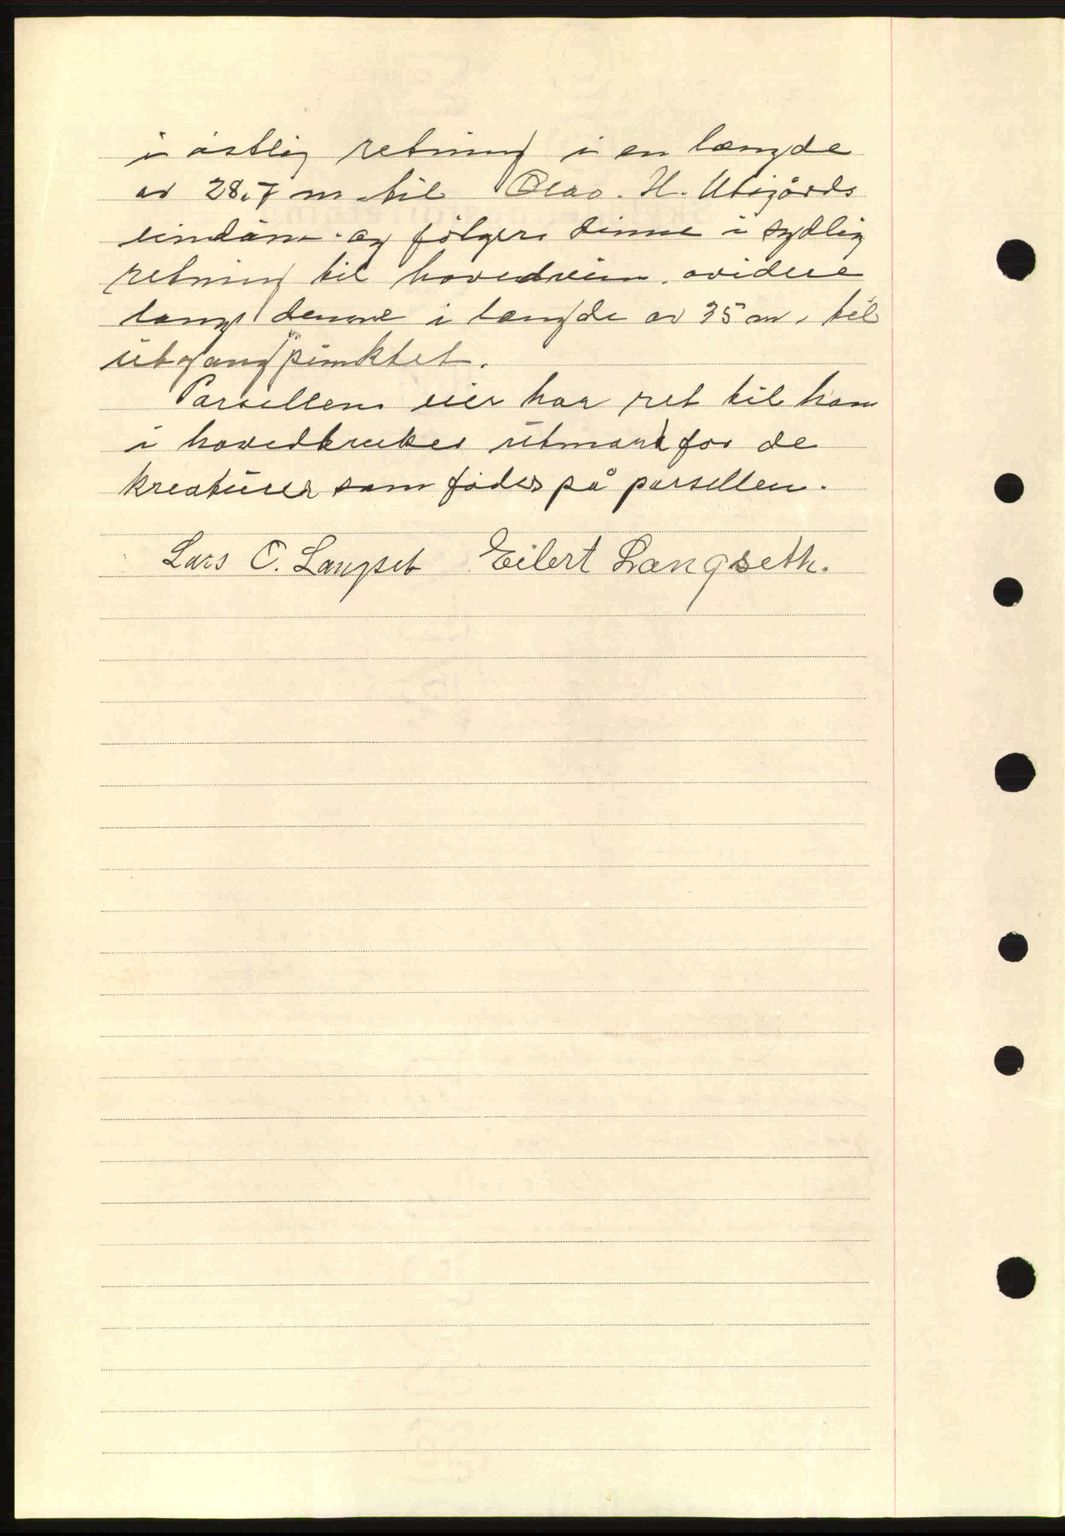 i østlig retning i en længde
av 28,7 m til Olav. H. Utigårds
eiendom og følger denne i sydlig
retning til hovedveien. videre
langs denne i længde av 35 m. til
utgangpunktet.
Parsellens eier har ret til havn
i hovedbrukes utmark for de
kreaturer som fødes på parsellen.
Lars O. Langset Eilert Langseth.